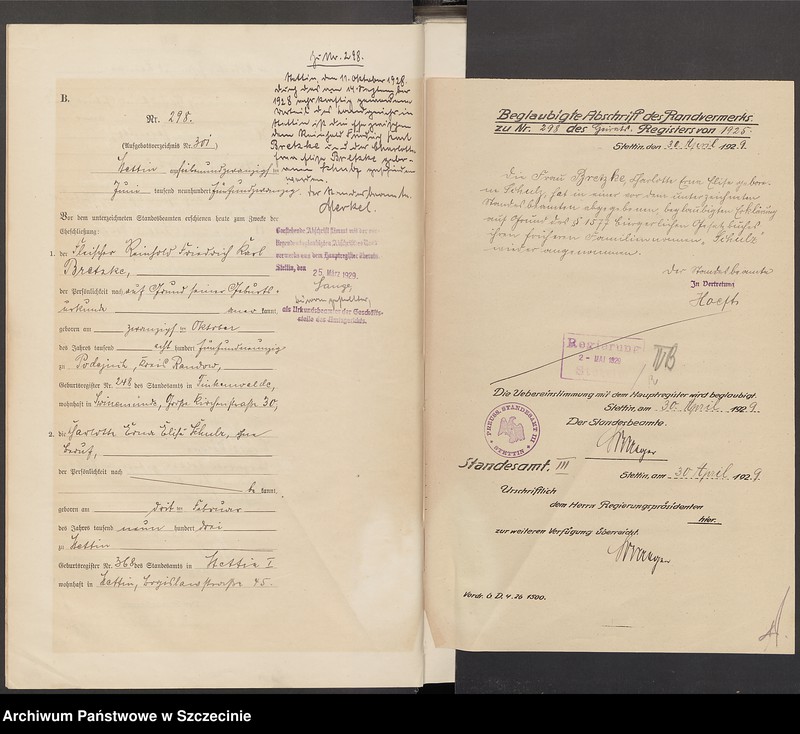 B.
Nr. 298.
(Aufgebotsverzeichnis Nr. 301)
Stettin, am achtundzwanzigsten
Juni tausend neunhundert fünfundzwanzig.
Vor dem unterzeichneten Standesbeamten erschienen heute zum Zwecke der
Eheschließung:
1. der Fleischer Reinhold Friedrich Karl
Bretzke,
der Persönlichkeit nach auf Grund seiner Geburts-
urkunde aner kannt,
geboren am zwanzigsten Oktober
des Jahres tausend acht hundert fünfundneunzig
zu Podejuch, Kreis Randow,
Geburtsregister Nr. 248 des Standesamts in Finkenwalde,
wohnhaft in Swinemünde, Große Kirchenstraße 30;
2. die Charlotte Erna Elise Schulz, ohne
Beruf,
der Persönlichkeit nach
be kannt,
geboren am dritten Februar
des Jahres tausend neun hundert drei
zu Stettin
Geburtsregister Nr. 368 des Standesamts in Stettin I
wohnhaft in Stettin, Bogislawstraße 45.
Zu Nr. 298.
Stettin, den 11. Oktober 1928.
Durch das am 14. September
1928 rechtskräftig gewordene
Urteil des Landgerichts in
Stettin ist die Ehe zwischen
dem Reinhold Friedrich Karl
Bretzke und der Charlotte
Erna Elise Bretzke gebor-
enen Schulz geschieden
worden.
Der Standesbeamte.
Merkel.
Stettin, den
25. März 1929.
Lange,
als Urkundsbeamter der Geschäfts-
stelle des Amtsgerichts.
Beglaubigte Abschrift des Randvermerks
zu Nr. 298 des Heirats-Registers von 1925.
Stettin, am 30. April 1929.
Die Frau Bretzke, Charlotte Erna Elise gebore-
ne Schulz, hat in einer vor dem unterzeichneten
Standesbeamten abgegebenen, beglaubigten Erklärung
auf Grund des § 1577 Bürgerlichen Gesetzbuchs
ihren früheren Familiennamen „Schulz"
wieder angenommen.
Der Standesbeamte
In Vertretung
Hoeft
Regierung
2 - MAI 1929
Die Uebereinstimmung mit dem Hauptregister wird beglaubigt.
Stettin, am 30. April 1929.
Der Standesbeamte.
PREUSS. STANDESAMT III
STETTIN
Standesamt. III
Stettin, am 30 April 1929.
Urschriftlich
dem Herrn Regierungspräsidenten
hier.
zur weiteren Verfügung überreicht.
Vordr. G D. 4. 26 1500.
Archiwum Państwowe w Szczecinie